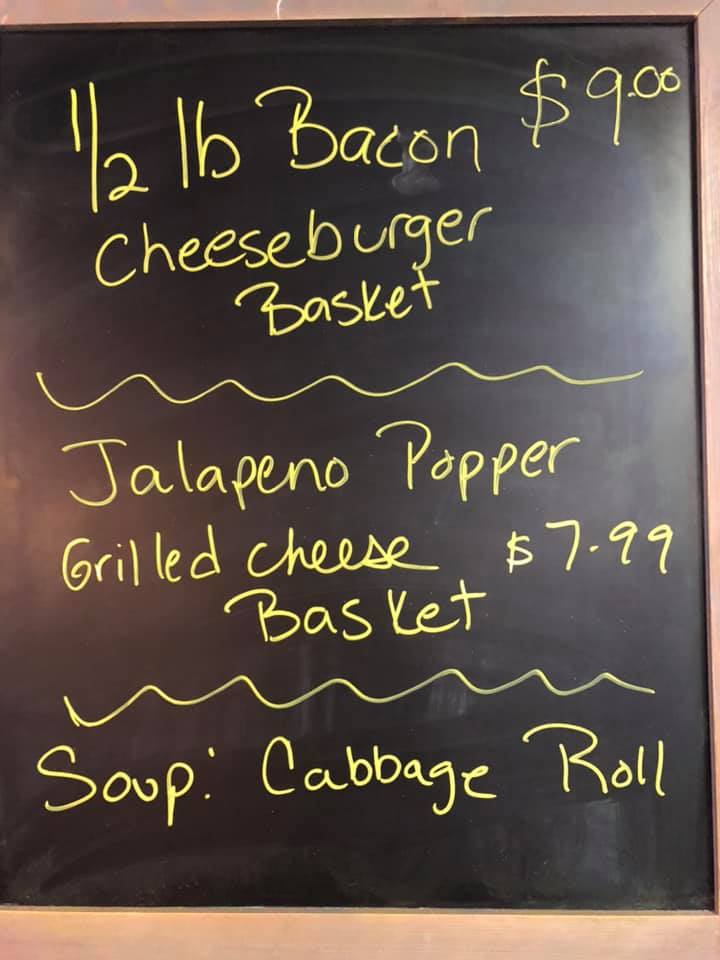 1/2 lb Bacon $9.00
Cheeseburger
Basket
Jalapeno Popper
Grilled cheese $7.99
Basket
Soup: Cabbage Roll